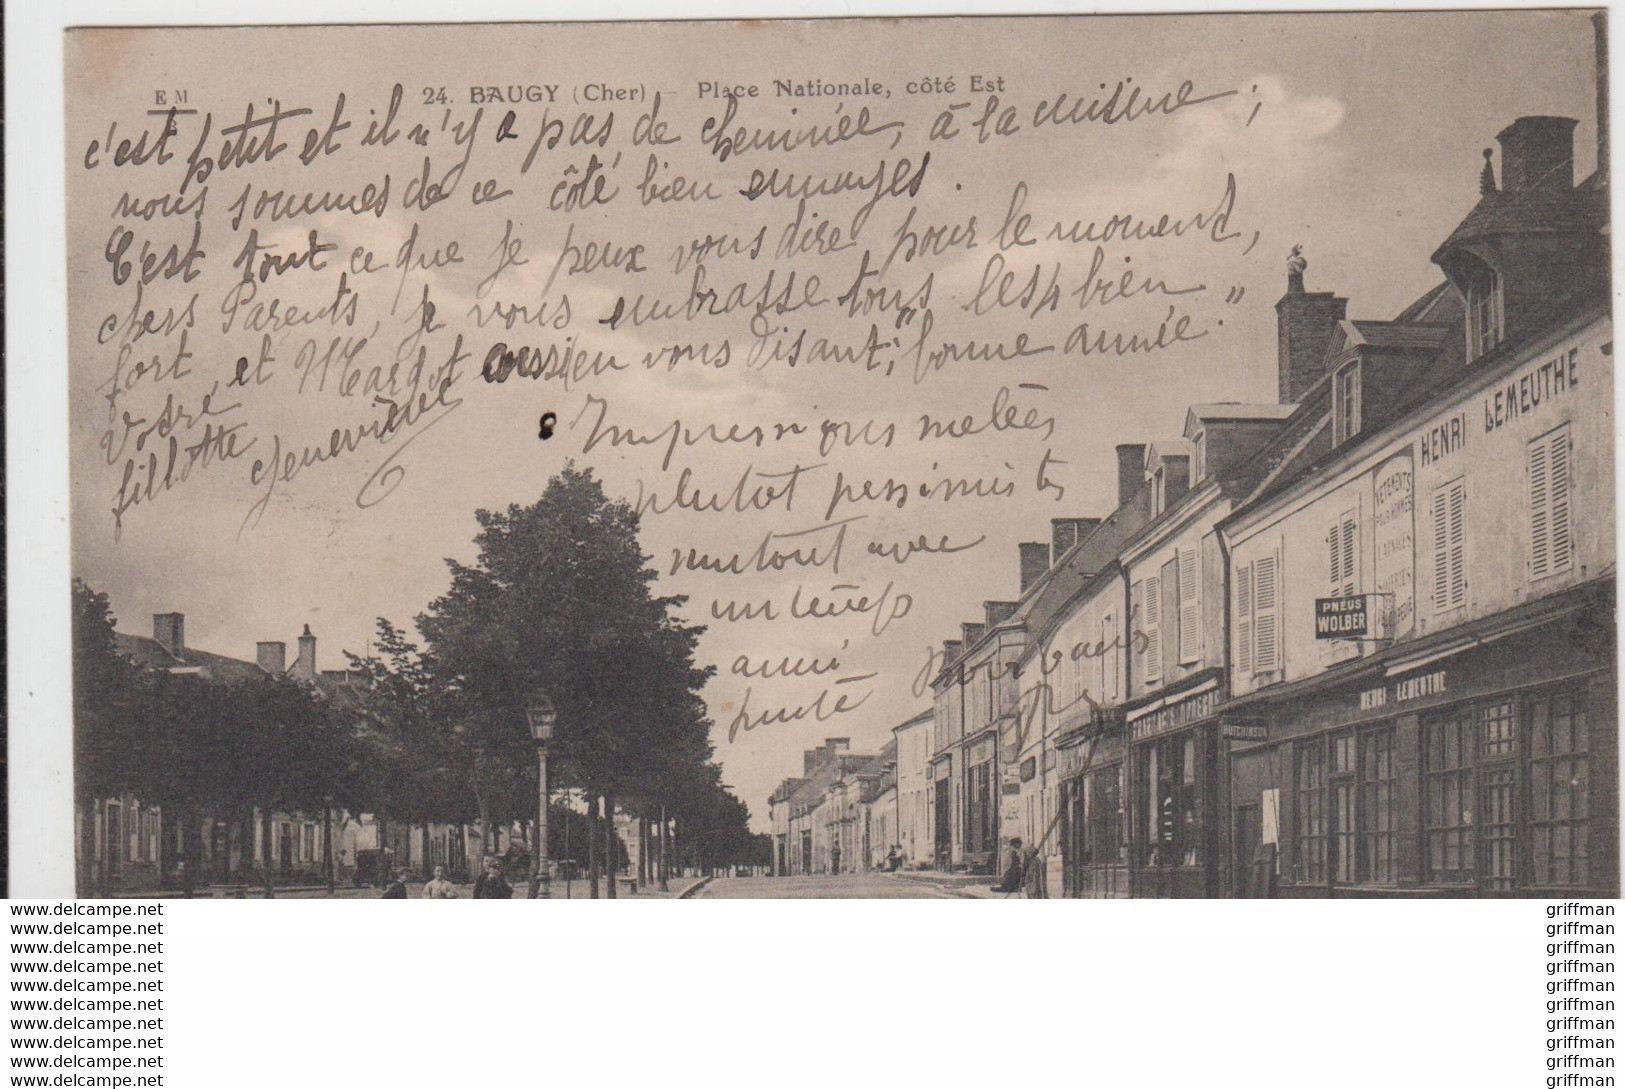 E M
B
24. BAUGY (Cher) — Place Nationale, côté Est
c'est petit et il n'y a pas de cheminée, à la cuisine ;
nous sommes de ce côté bien ennuyés.
C'est tout ce que je peux vous dire pour le moment,
chers Parents, je vous embrasse tous les 4 bien
fort, et Margot aussi en vous disant; "bonne année."
Votre
fillotte
Geneviève
Impressions mêlées
plutôt pessimistes
surtout avec
un temps
aussi
pour
HENRI LEMEUTHE
VÊTEMENTS
POUR HOMMES
LAINAGES
SOIERIES
PNEUS
WOLBER
HENRI LEMEUTHE
HUTCHINSON
www.delcampe.net griffman
www.delcampe.net griffman
www.delcampe.net griffman
www.delcampe.net griffman
www.delcampe.net griffman
www.delcampe.net griffman
www.delcampe.net griffman
www.delcampe.net griffman
www.delcampe.net griffman
www.delcampe.net griffman